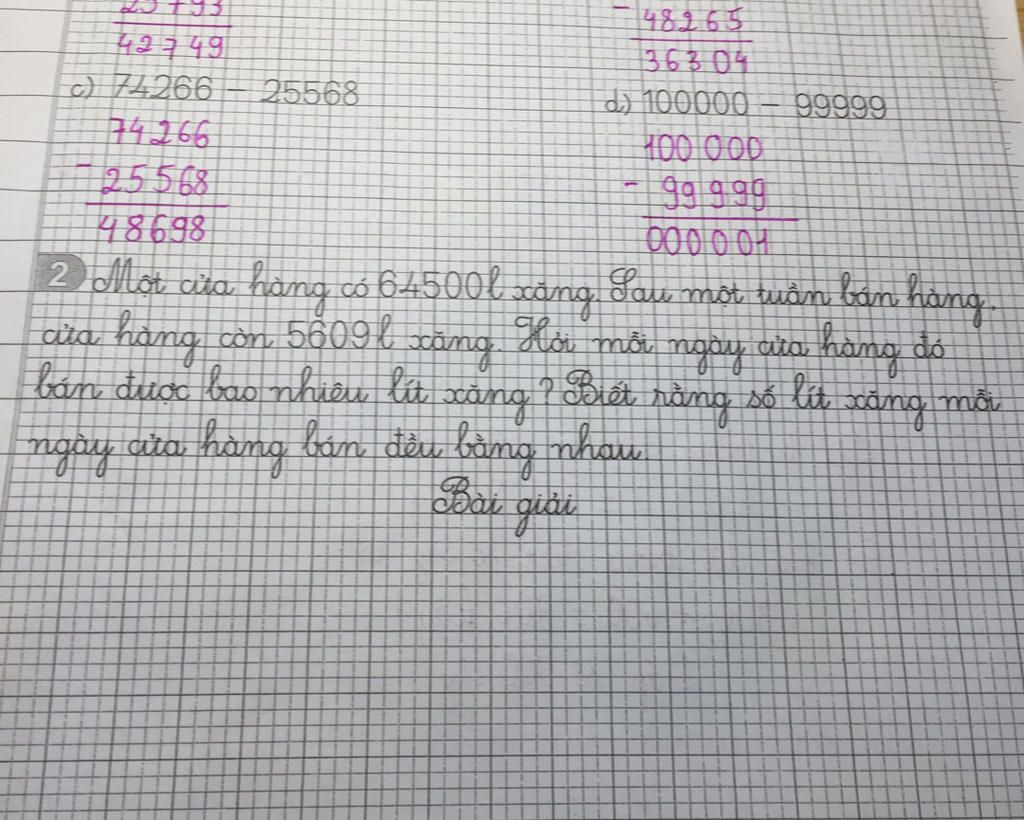 25793
- 48265
42749
36304
c) 74266 - 25568
d) 100000 - 99999
74266
100000
- 25568
- 99999
48698
000001
2 Một cửa hàng có 64500l xăng. Sau một tuần bán hàng,
cửa hàng còn 5609l xăng. Hỏi mỗi ngày cửa hàng đó
bán được bao nhiêu lít xăng? Biết rằng số lít xăng mỗi
ngày cửa hàng bán đều bằng nhau.
Bài giải